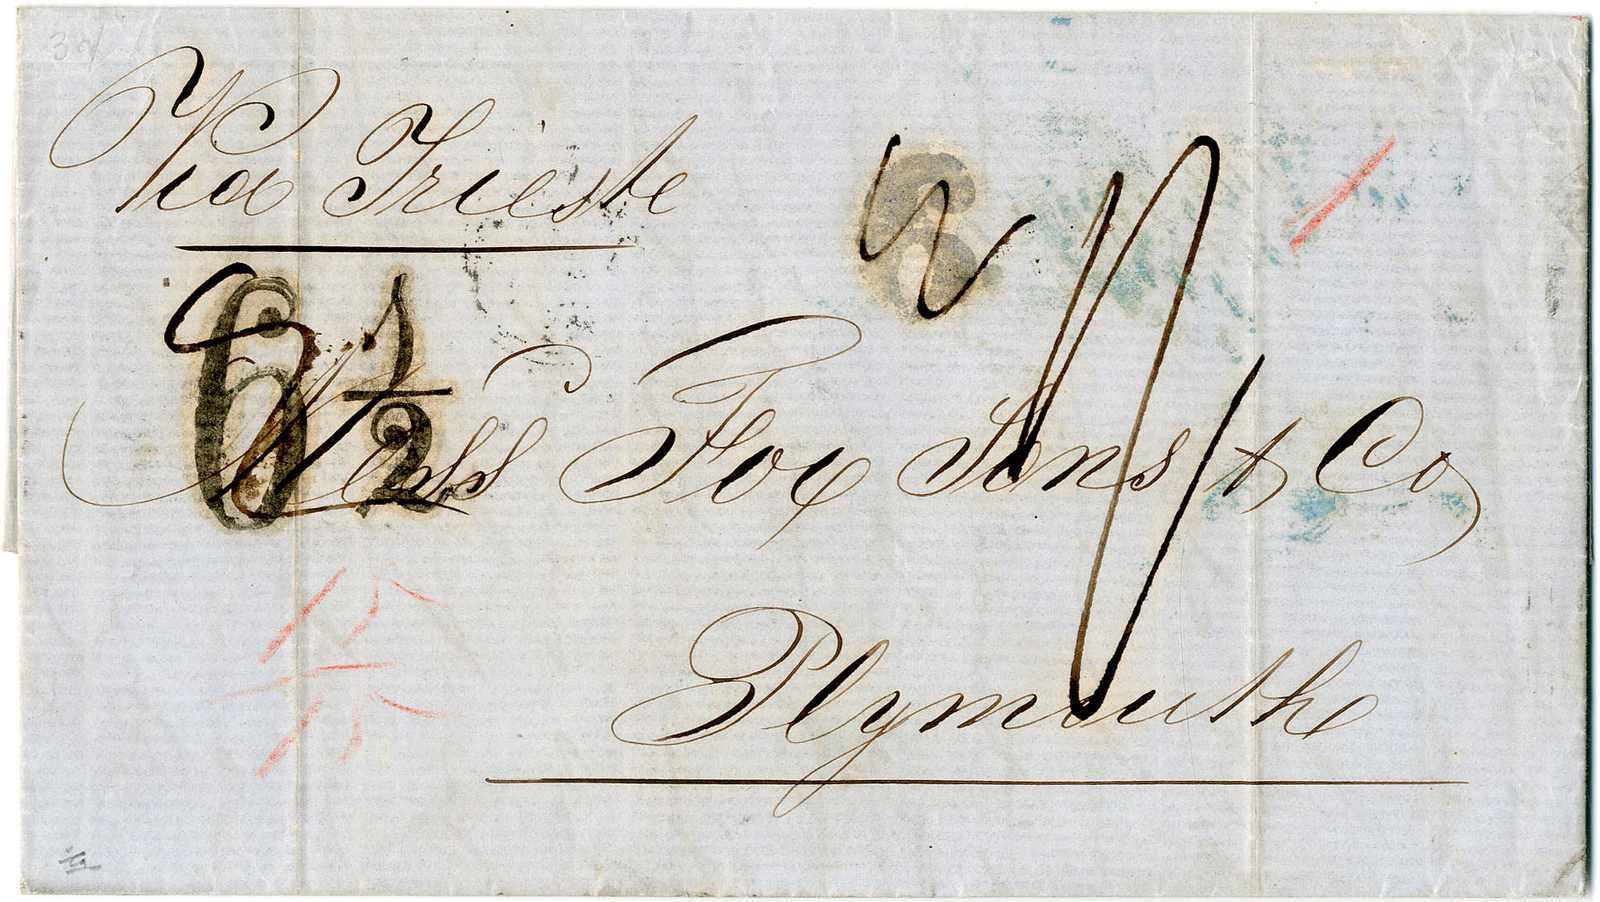 Via Trieste
6 1/2
Mess Fox Sons & Co
Plymouth